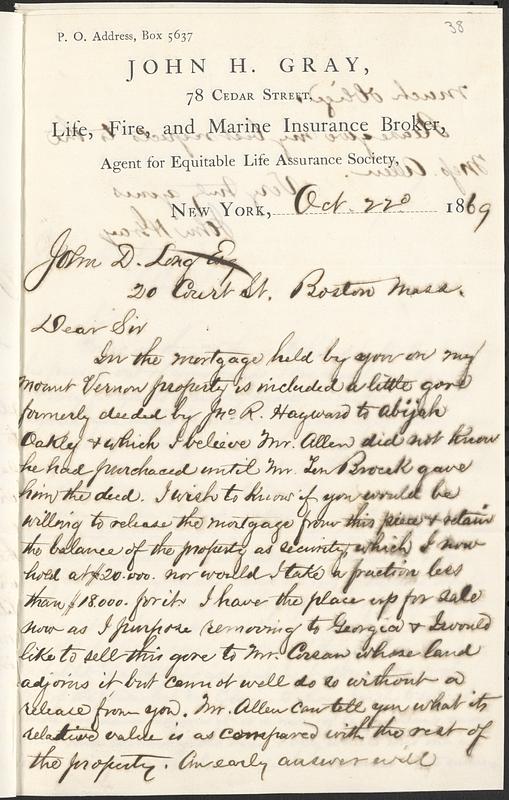 38
P. O. Address, Box 5637
JOHN H. GRAY,
78 Cedar Street,
Life, Fire, and Marine Insurance Broker,
Agent for Equitable Life Assurance Society,
New York, Oct. 22d 1869
John D. Long Esq
20 Court St. Boston Mass.
Dear Sir
In the mortgage held by you on my
Mount Vernon property is included a little gore
formerly deeded by Jno R. Hayward to Abijah
Oakley & which I believe Mr. Allen did not know
he had purchased until Mr. Ten Broeck gave
him the deed. I wish to know if you would be
willing to release the mortgage from this piece & retain
the balance of the property as security, which I now
hold at $20.000. nor would I take a fraction less
than $18.000. for it. I have the place up for sale
now as I purpose removing to Georgia & I would
like to sell this gore to Mr. Corsan whose land
adjoins it but cannot well do so without a
release from you. Mr. Allen can tell you what its
relative value is as compared with the rest of
the property. An early answer will